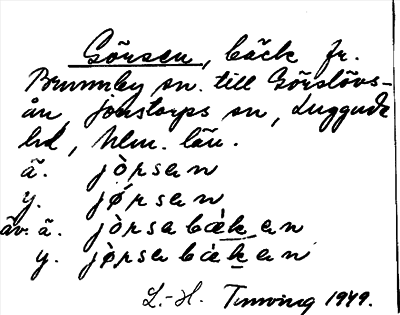 Görsen, bäck fr.
Brunnby sn. till Görslövs-
ån, Jonstorps sn, Luggude
hd, Mlm. län.
ä. jòrsan
y. jørsan
äv. ä. jòrsabækan
y. jòrsabækan
L.-H. Tunving 1949.